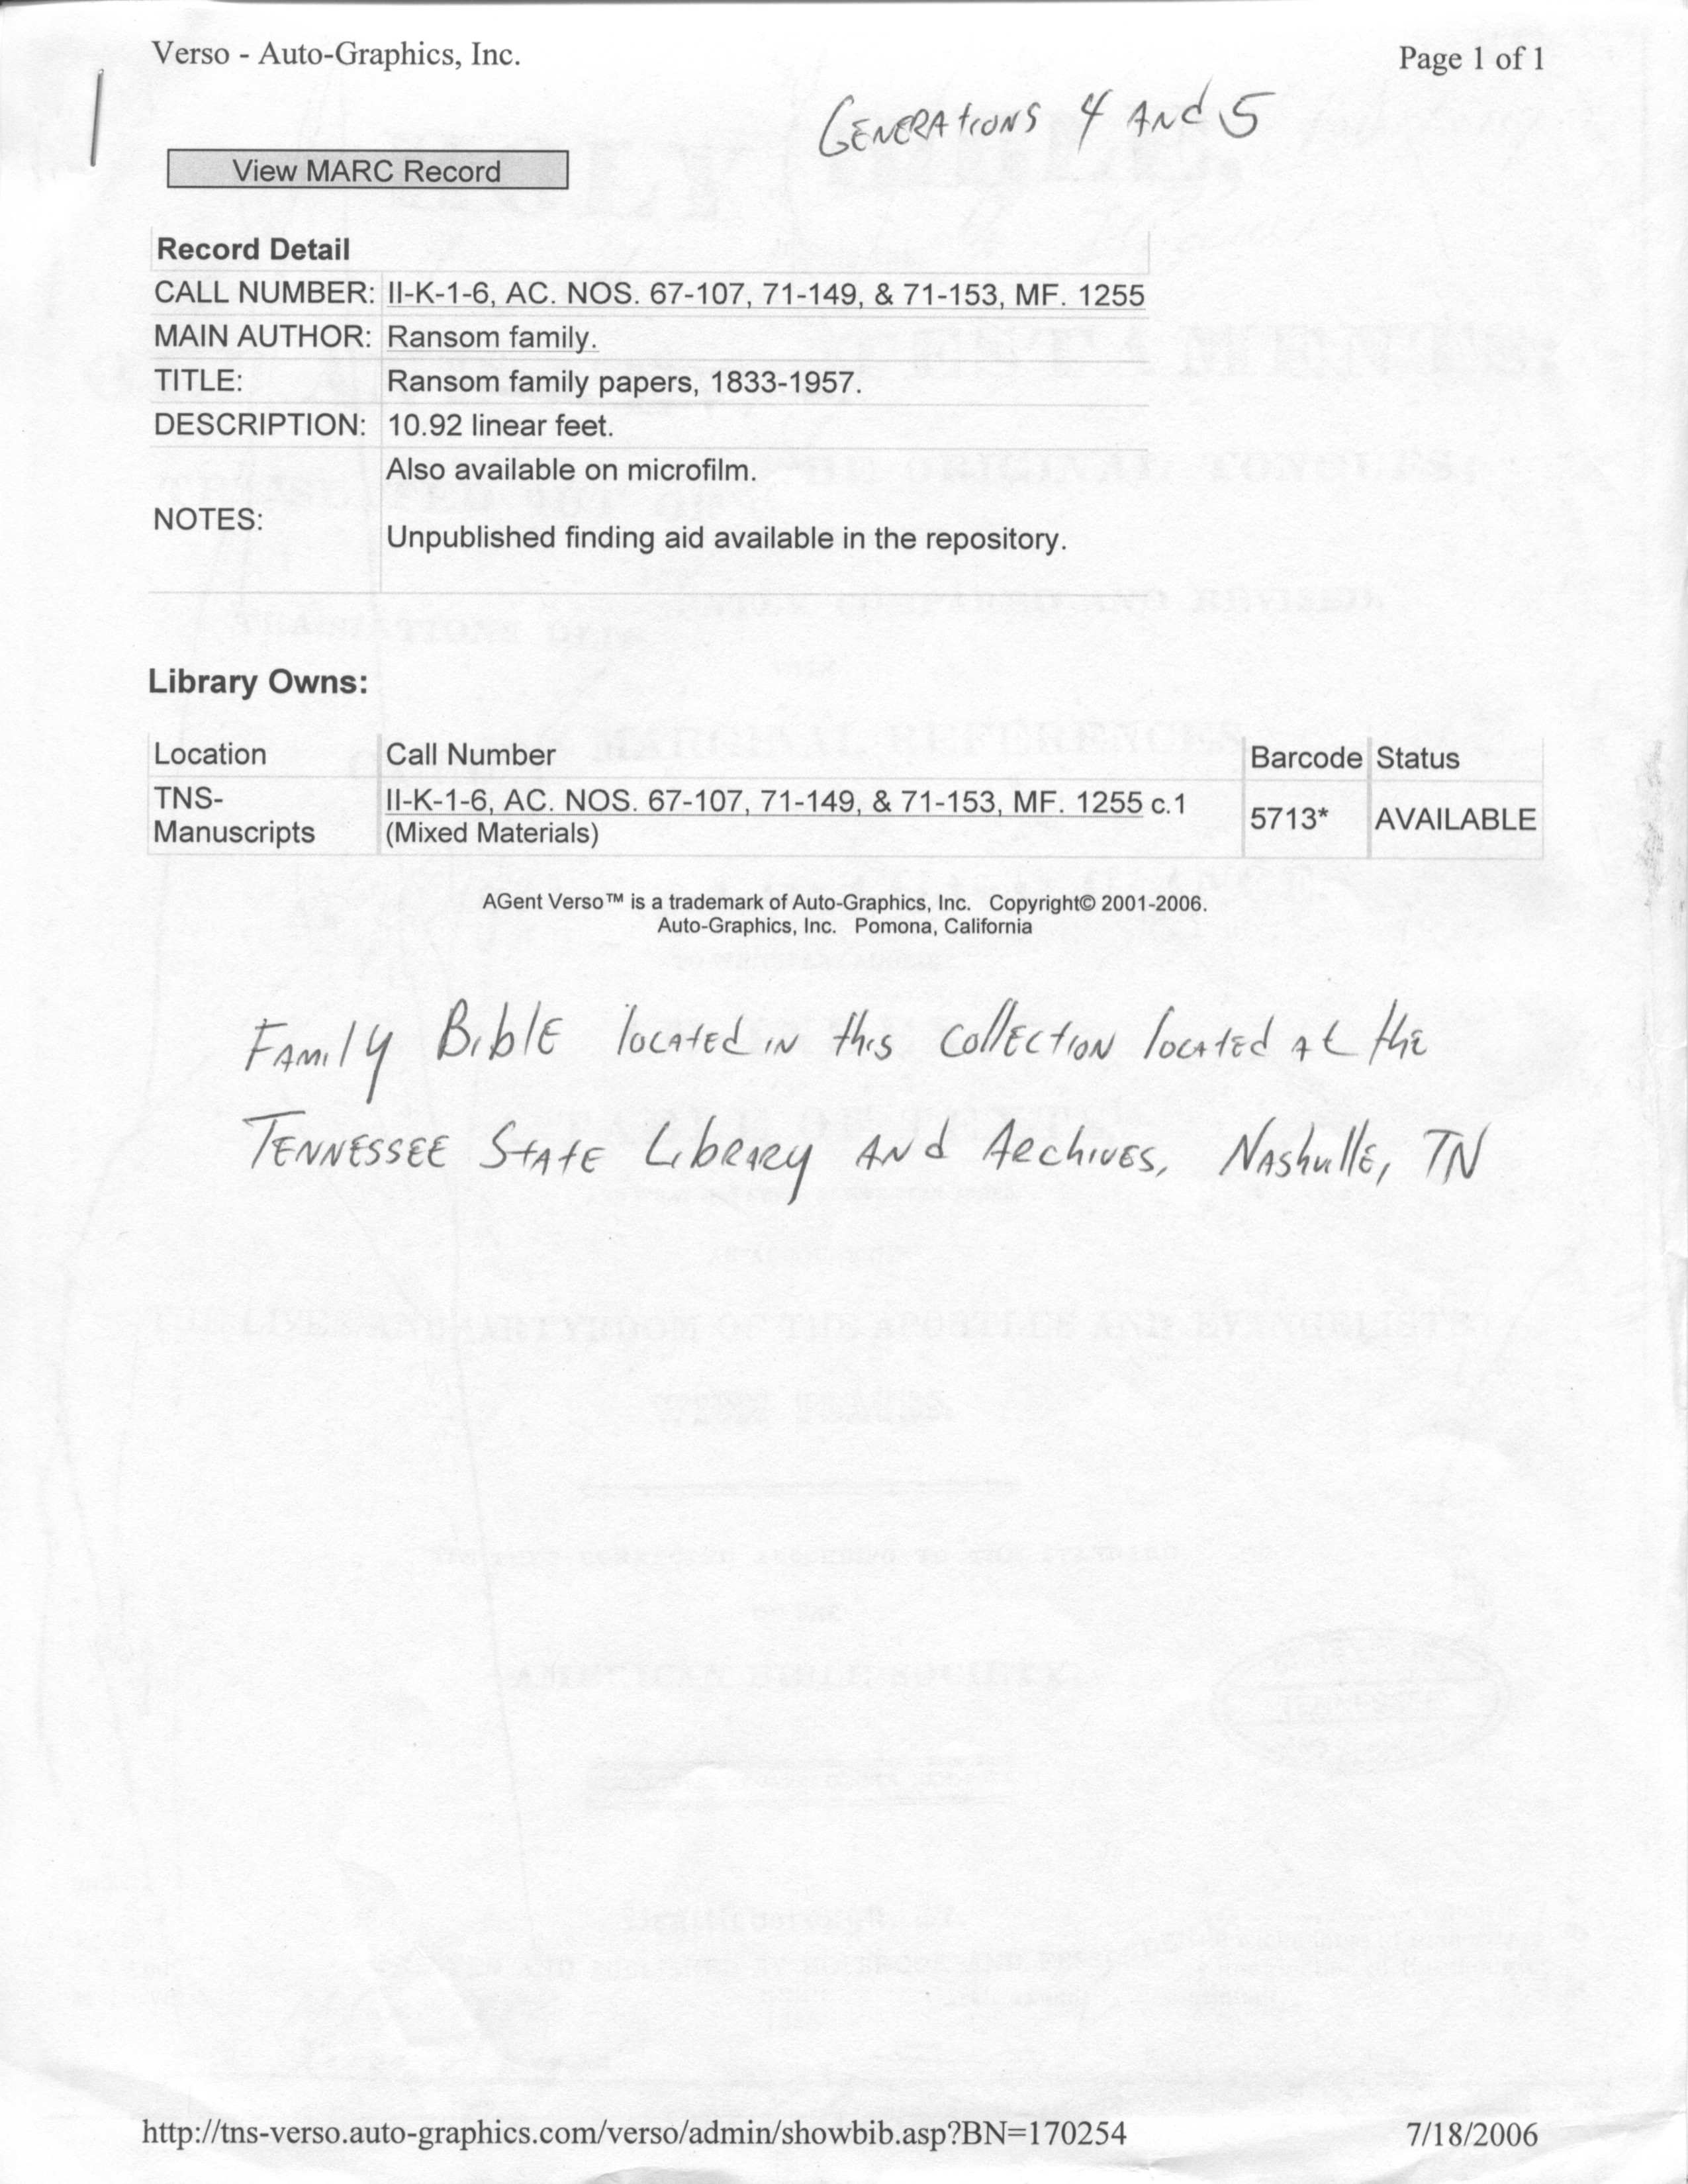 Verso - Auto-Graphics, Inc. Page 1 of 1
GENERAtIONS 4 ANd 5
View MARC Record
Record Detail
CALL NUMBER: II-K-1-6, AC. NOS. 67-107, 71-149, & 71-153, MF. 1255
MAIN AUTHOR: Ransom family.
TITLE: Ransom family papers, 1833-1957.
DESCRIPTION: 10.92 linear feet.
Also available on microfilm.
NOTES:
Unpublished finding aid available in the repository.
Library Owns:
Location Call Number Barcode Status
TNS- II-K-1-6, AC. NOS. 67-107, 71-149, & 71-153, MF. 1255 c.1
Manuscripts (Mixed Materials) 5713* AVAILABLE
AGent Verso™ is a trademark of Auto-Graphics, Inc. Copyright© 2001-2006.
Auto-Graphics, Inc. Pomona, California
FAMily BiblE locAtEd iN this CollEctioN locAtEd At thE
TENNESSEE StAtE LibRARy ANd ARchivES, NAshvillE, TN
http://tns-verso.auto-graphics.com/verso/admin/showbib.asp?BN=170254 7/18/2006